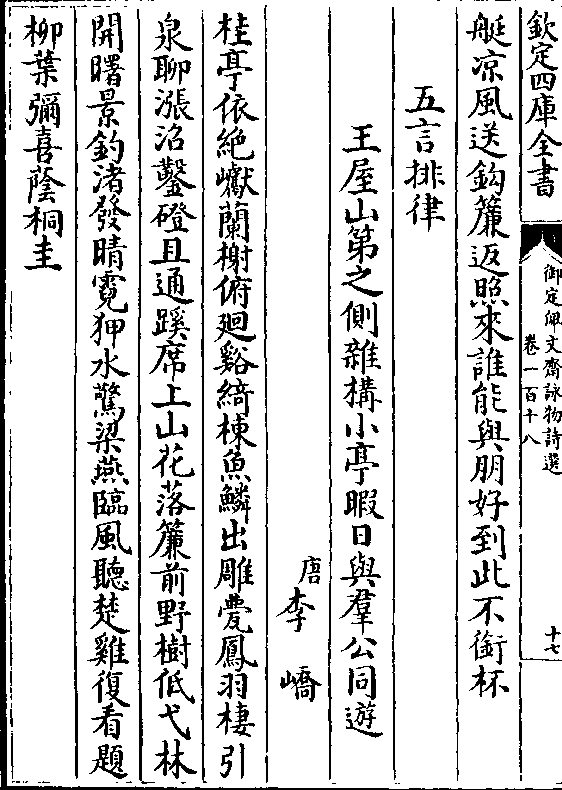 欽定四庫全書
御定佩文齋詠物詩選
卷一百十八
十七
艇凉風送鈎簾返照來誰能與朋好到此不銜杯
五言排律
王屋山第之側雜構小亭暇日與羣公同遊
唐李嶠
桂亭依絶巘蘭榭俯廻谿綺棟魚鱗出雕甍鳳羽棲引
泉聊漲沼鑿磴且通蹊席上山花落簾前野樹低弋林
開曙景釣渚發晴霓狎水驚梁燕臨風聽楚雞復看題
柳葉彌喜蔭桐圭